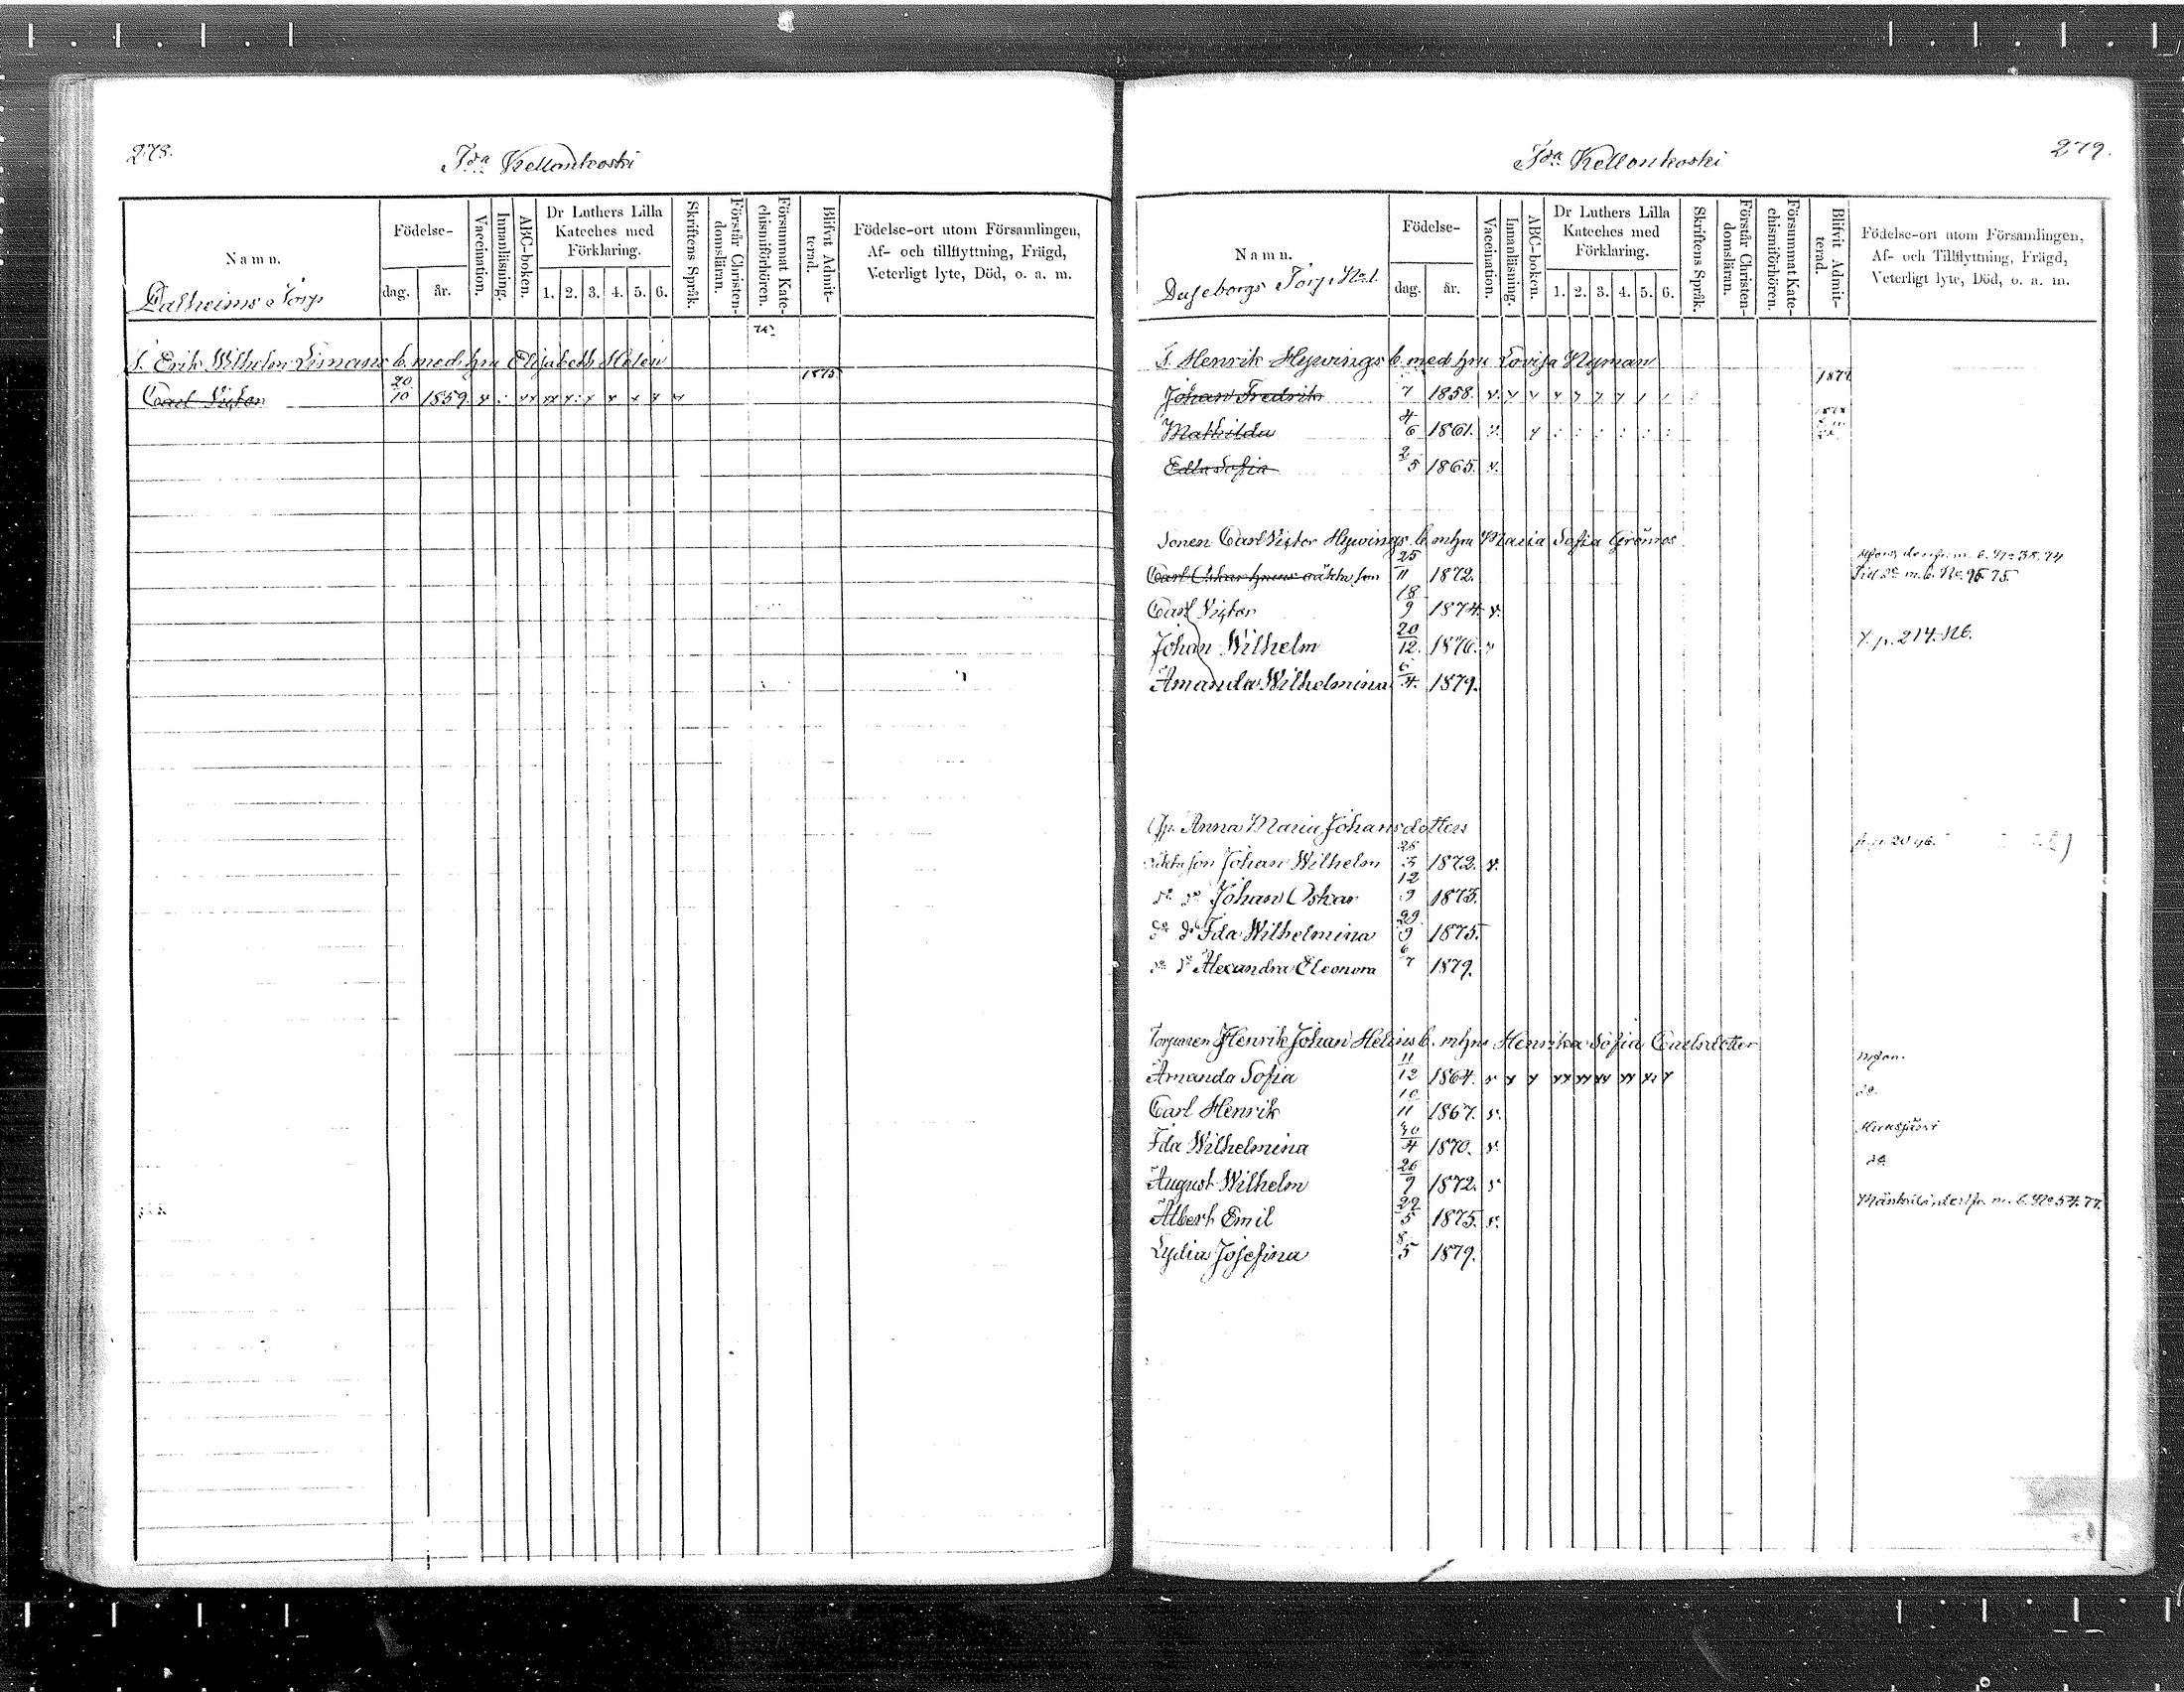 278.
Kellonkoski
Namn.
Födelse-
dag. år.
Vaccination.
Innanläsning.
ABC-boken.
Dr Luthers Lilla
Kateches med
Förklaring.
1. 2. 3. 4. 5. 6.
Skriftens Språk.
Förstår Christen-
domsläran.
Försummat Kate-
chismiförhören.
Blifvit Admit-
terad.
Födelse-ort utom Församlingen,
Af- och tillflyttning, Frägd,
Veterligt lyte, Död, o. a. m.
Dalheims Torp
T. Erik Wilhelm Limans b. med hu Elisabeth Helen
1875
Carl Victor 20/10 1859.
279.
Kellonkoski
Namn.
Födelse-
dag. år.
Vaccination.
Innanläsning.
ABC-boken.
Dr Luthers Lilla
Kateches med
Förklaring.
1. 2. 3. 4. 5. 6.
Skriftens Språk.
Förstår Christen-
domsläran.
Försummat Kate-
chismiförhören.
Blifvit Admit-
terad.
Födelse-ort utom Församlingen,
Af- och Tillflyttning, Frägd,
Veterligt lyte, Död, o. a. m.
Torp
T. Henrik Hywings b. med hu Lovisa Nyman
Johan Fredrik 7 1858.
Mathilda 4/6 1861.
Edla Sofia 2/5 1865.
Sonen Carl Victor Hywings b. m hu Maria Sofia Grönros
Carl Oskar son 25/11 1872. m. b. No 95 75
Carl Victor 18/9 1874.
Johan Wilhelm 20/12. 1876. p. 214. N6.
Amanda Wilhelmina 6/4. 1879.
Anna Maria Johansdotters
son Johan Wilhelm 1872.
Johan Oskar 12/9 1873.
Ida Wilhelmina 29/9 1875.
Alexandra Eleonora 6/7 1879.
Henrik Johan Helins b. m hu Henrika Sofia Carlsdotter
Amanda Sofia 11/12 1864.
Carl Henrik 10/11 1867.
Ida Wilhelmina 30/4 1870. Hausjärvi
August Wilhelm 26/9 1872.
Albert Emil 29/5 1875. m. b. No 54. 77.
Lydia Josefina 8/5 1879.